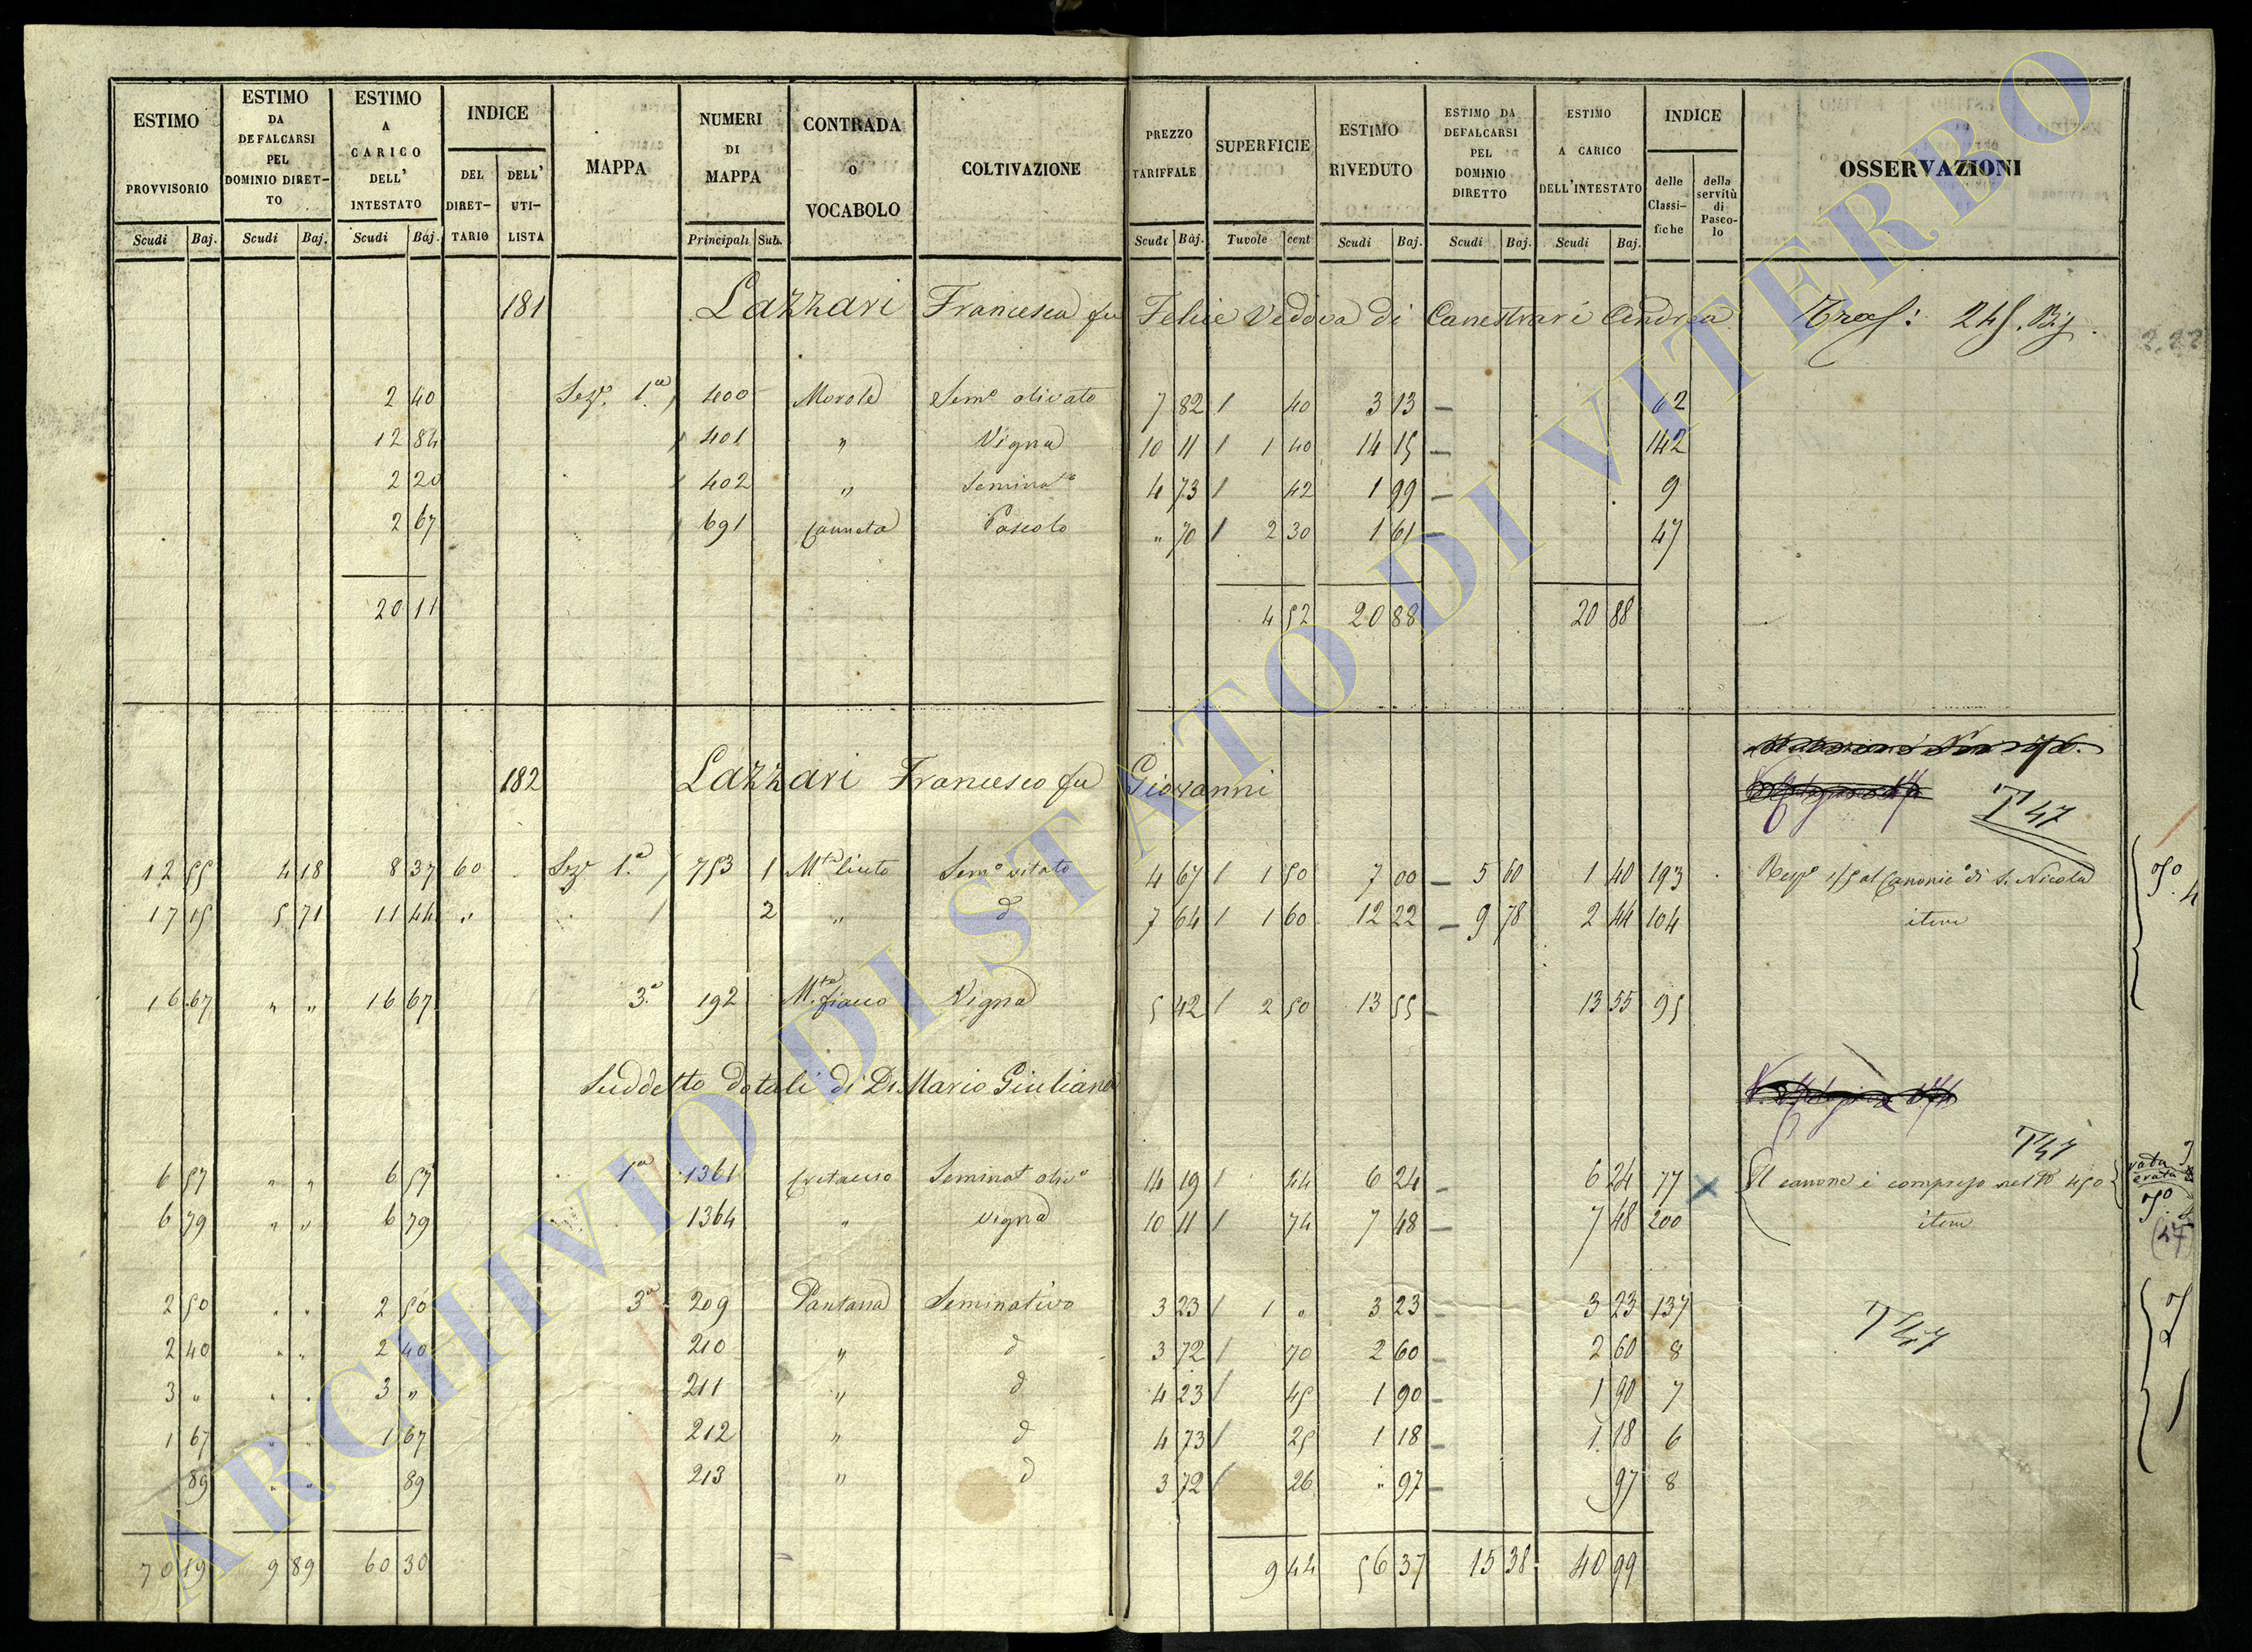 ESTIMO PROVVISORIO Scudi Baj.
ESTIMO DA DEFALCARSI PEL DOMINIO DIRET-TO Scudi Baj.
ESTIMO A CARICO DELL' INTESTATO Scudi Baj.
INDICE DEL DIRET-TARIO DELL' UTI-LISTA
MAPPA
NUMERI DI MAPPA Principali Sub.
CONTRADA o VOCABOLO
COLTIVAZIONE
PREZZO TARIFFALE Scudi Baj.
SUPERFICIE Tuvole cent
ESTIMO RIVEDUTO Scudi Baj.
ESTIMO DA DEFALCARSI PEL DOMINIO DIRETTO Scudi Baj.
ESTIMO A CARICO DELL'INTESTATO Scudi Baj.
INDICE delle Classi-fiche della servitù di Pasco-lo
OSSERVAZIONI
181 Lazzari Francesca fu Felice Vedova di Canestrari Andrea
2 40 Seze. 1.a 400 Morole Semo olivato 7 82 / 40 3 13 — 62
12 84 401 " Vigna 10 11 / 1 40 14 15 — 142
2 20 402 " Seminato 4 73 / 42 1 99 — 9
2 67 691 Canneta Pascolo " 70 / 2 30 1 61 — 47
20 11 4 52 20 88 20 88
182 Lazzari Francesco fu Giovanni
T 47
12 55 4 18 8 37 60 Seze 1.a 753 1 Mte liuto Semo vitato 4 67 / 1 50 7 00 — 5 60 1 40 193 1/5 al Canonico di S. Nicola
17 15 5 71 11 44 " 2 " d 7 64 / 1 60 12 22 — 9 78 2 44 104 item
16 67 " " 16 67 3.a 192 Mte fiacco Vigna 5 42 / 2 50 13 55 — 13 55 95
Suddetto dotali di Di Mario Giuliana
T47
6 57 " " 6 57 1.a 1361 Cretaccio Seminato olivo 14 19 / 44 6 24 — 6 24 77 Il canone è compreso nel No 450
6 79 " " 6 79 1364 " Vigna 10 11 / 74 7 48 — 7 48 200 item
(47)
2 50 " " 2 50 3.a 209 Pantana Seminativo 3 23 / 1 " 3 23 — 3 23 137
T47
2 40 " " 2 40 210 " d 3 72 / 70 2 60 — 2 60 8
3 " " " 3 " 211 " d 4 23 / 45 1 90 — 1 90 7
1 67 " " 1 67 212 " d 4 73 / 25 1 18 — 1 18 6
89 " " 89 213 " d 3 72 / 26 " 97 — 97 8
70 19 9 89 60 30 9 44 56 37 15 38 40 99
ARCHIVIO DI STATO DI VITERBO